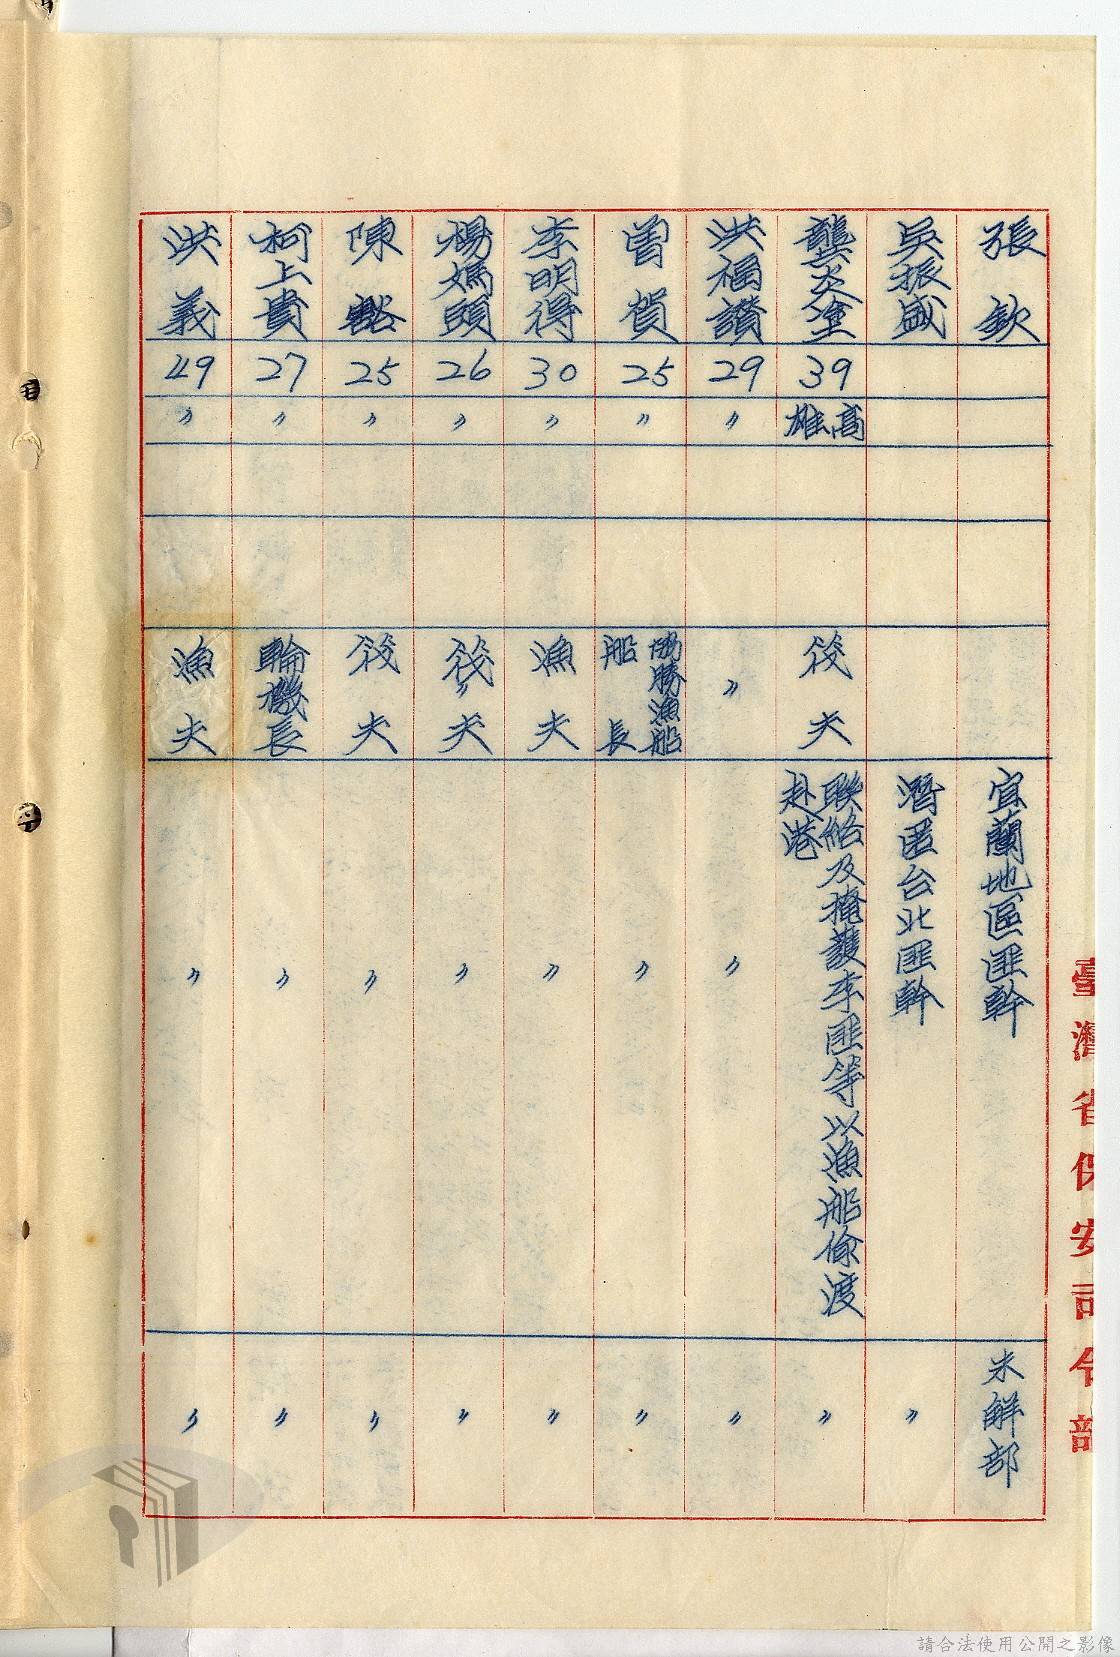 張欽
宜蘭地區匪幹
未解部
吳振盛
潛匿台北匪幹
〃
龔炎塗
39
高雄
筏夫
聯絡及掩護李匪等以漁船偷渡
赴港
〃
洪福讚
29
〃
〃
〃
〃
曾賀
25
〃
協勝漁船
船長
〃
〃
李明得
30
〃
漁夫
〃
〃
楊媽頭
26
〃
筏夫
〃
〃
陳豁
25
〃
筏夫
〃
〃
柯上貴
27
〃
輪機長
〃
〃
洪義
49
〃
漁夫
〃
〃
臺灣省保安司令部
請合法使用公開之影像